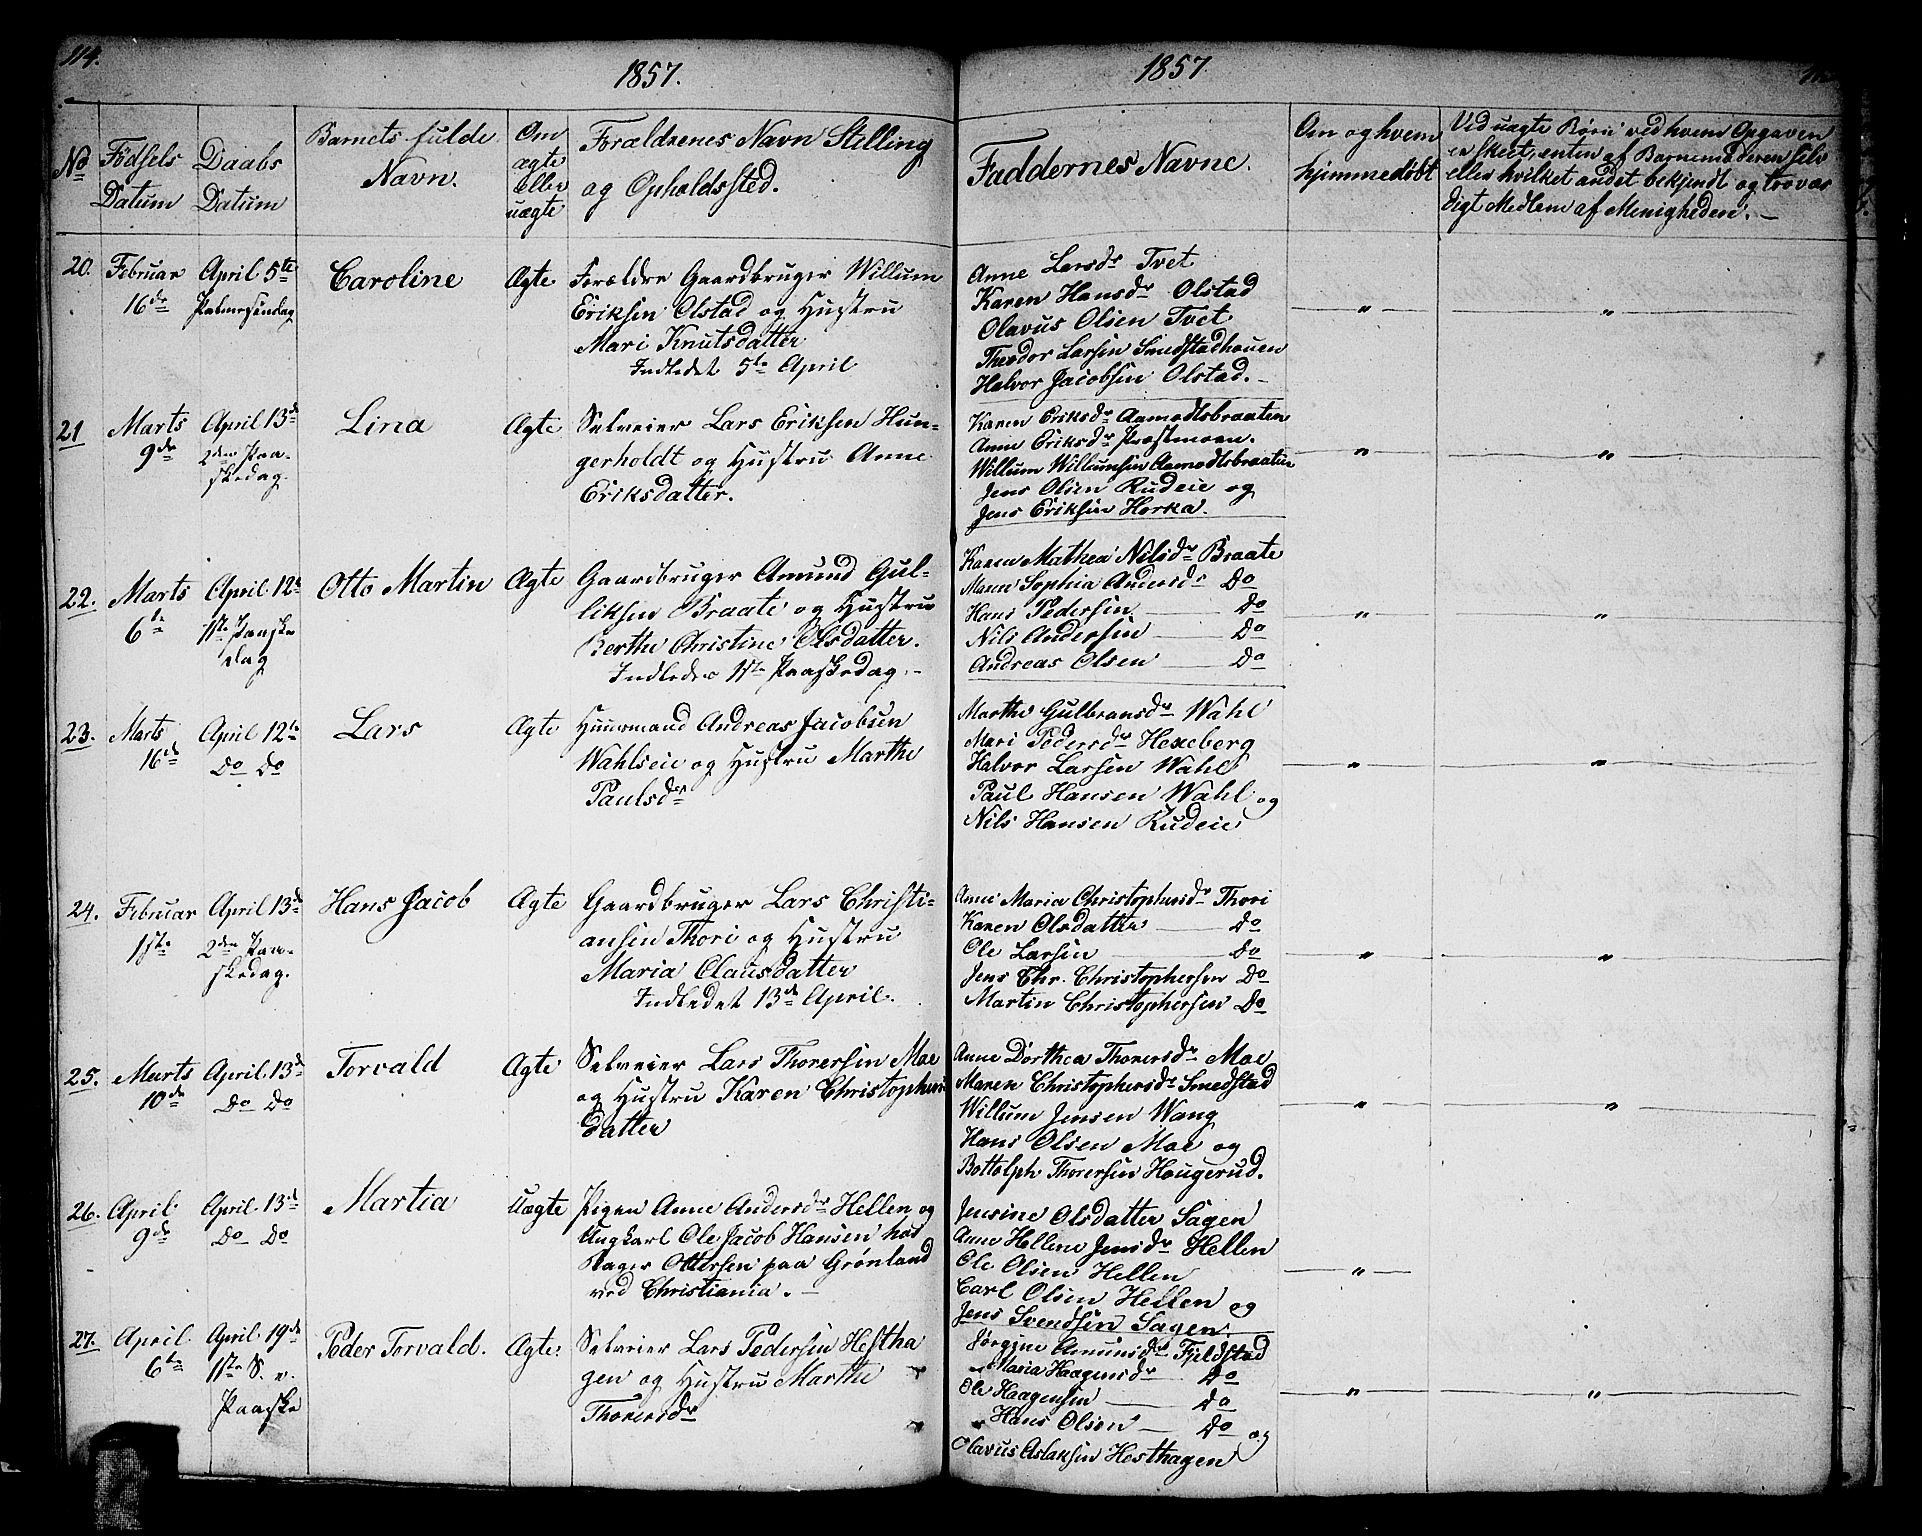 114.
1857.
No
Fødsels Datum
Daabs Datum
Barnets fulde Navn.
Om ægte eller uægte
Forældrenes Navn Stilling
og Opholdssted.
20.
Februar
16de
April 5te
Palmesøndag
Caroline
Ægte
Forældre Gaardbruger Willum
Eriksen Olstad og Hustru
Mari Knutsdatter
Indledet 5te April
21
Marts
9de
April 13de
2den Paa-
skedag.
Lina
Ægte
Selveier Lars Eriksen Hun-
gerholdt og Hustru Anne
Eriksdatter.
22.
Marts
6te
April 12te
1ste Paaske
dag
Otto Martin
Ægte
Gaardbruger Amund Gul-
liksen Braate og Hustru
Berthe Christine Olsdatter.
Indledes 1ste Paaskedag.-
23.
Marts
16de
April 12te
Do Do
Lars
Ægte
Huusmand Andreas Jacobsen
Wahlseie og Hustru Marthe
Paulsdr
24.
Februar
1ste
April 13de
2den Paa-
skedag.
Hans Jacob
Ægte
Gaardbruger Lars Christi-
ansen Thori og Hustru
Maria Clausdatter
Indledet 13de April.
25.
Marts
10de
April 13de
Do Do
Torvald
Ægte
Selveier Lars Thorersen Moe
og Hustru Karen Christophers
datter
26.
April
9de
April 13de
Do Do
Martia
Uægte
Pigen Anne Andersdr Hellen og
Ungkarl Ole Jacob Hansen hos
Ottersen paa Grønland
ved Christiania. -
27.
April
6te
April 19de
1ste S. e.
Paaske
Peder Torvald.
Ægte
Selveier Lars Pedersen Hestha
gen og Hustru Marthe
Thorersdr
1857
Faddernes Navne.
Om og hvem
hjemmedøbt
Ved uægte Børn ved hvem Opgaven
er skeet, enten af Barnemoderen selv
eller hvilket andet bekjendt og trovær
digt Medlem af Menigheden. -
Anne Larsdr Tvet
Karen Hansdr Olstad
Olavus Olsen Tvet
Theodor Larsen Smedstadhouen
Halvor Jacobsen Olstad. -
" "
Karen Eriksdr Aamodtsbraaten
Anne Eriksdr Præstmoen.
Willum Willumsen Aamodtsbraaten
Jens Olsen Rudeie og
Jens Eriksen Horka.
" "
Karen Mathea Nilsdr Braate
Maren Sophia Andersdr Do
Hans Pedersen Do
Nils Andersen Do
Andreas Olsen Do
" "
Marthe Gulbransdr Wahl
Mari Pedersdr Hexeberg
Halvor Larsen Wahl
Paul Hansen Wahl og
Nils Hansen Rudeie
" "
Anne Maria Christophersdr Thori
Karen Olsdatter Do
Ole Larsen Do
Jens Chr. Christophersen Do
Martin Christophersen Do
" "
Anne Dorthea Thorersdr Moe
Maren Christophersdr Smedstad
Willum Jensen Wang
Hans Olsen Moe og
Bottolph Thorersen Hougerud.
" "
Jensine Olsdatter Sagen
Anne Hellene Jensdr Hellen
Ole Olsen Hellen
Carl Olsen Hellen og
Jens Svendsen Sagen.
"
Jørgine Amundsdr Fjeldstad
Maria Haagensdr Do
Ole Haagensen Do
Hans Olsen Do og
Olavus Aslaksen Hesthagen
" "